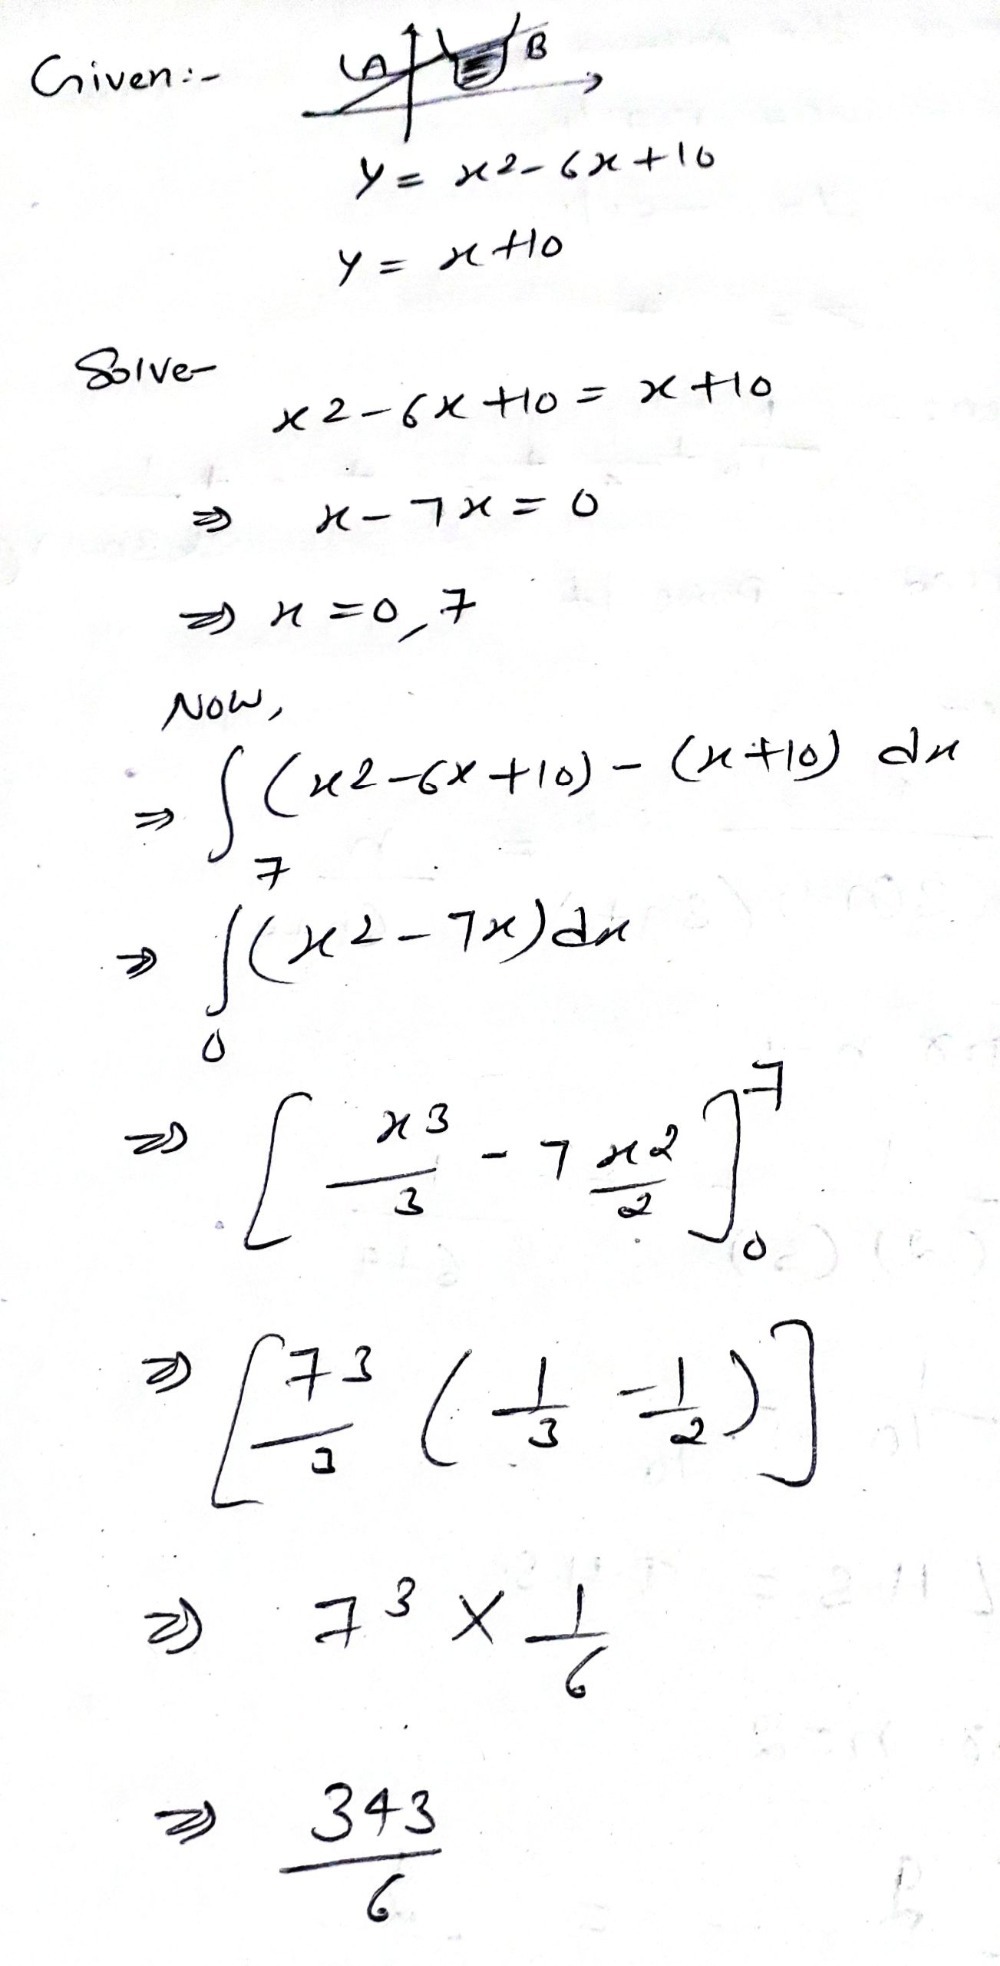 Given:-
A B
y = x2-6x+10
y = x+10
Solve-
x2-6x+10 = x+10
⇒ x-7x=0
⇒ x=0,7
Now,
⇒ ∫(x2-6x+10)-(x+10) dx
7
⇒ ∫(x2-7x)dx
0
⇒ [x3/3 - 7 x2/2]7 0
⇒ [73/3 (1/3 -1/2)]
⇒ 73 × 1/6
⇒ 343/6